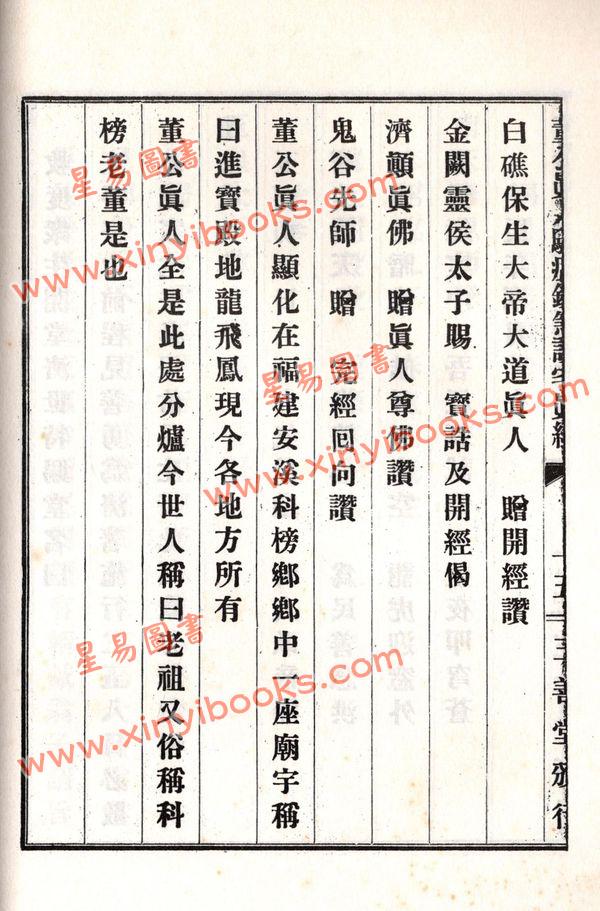 白礁保生大帝大道眞人　贈開經讚
金闕靈侯太子賜　寶誥及開經偈
濟顚眞佛　贈眞人尊佛讚
鬼谷先師　贈　完經回向讚
董公眞人顯化在福建安溪科榜鄉鄉中一座廟宇稱
曰進寶殿地龍飛鳳現今各地方所有
董公眞人全是此處分爐今世人稱曰老祖又俗稱科
榜老董是也
三善堂頒行
星易圖書
www.xinyibooks.com
星易圖書
www.xinyibooks.com
星易圖書
www.xinyibooks.com